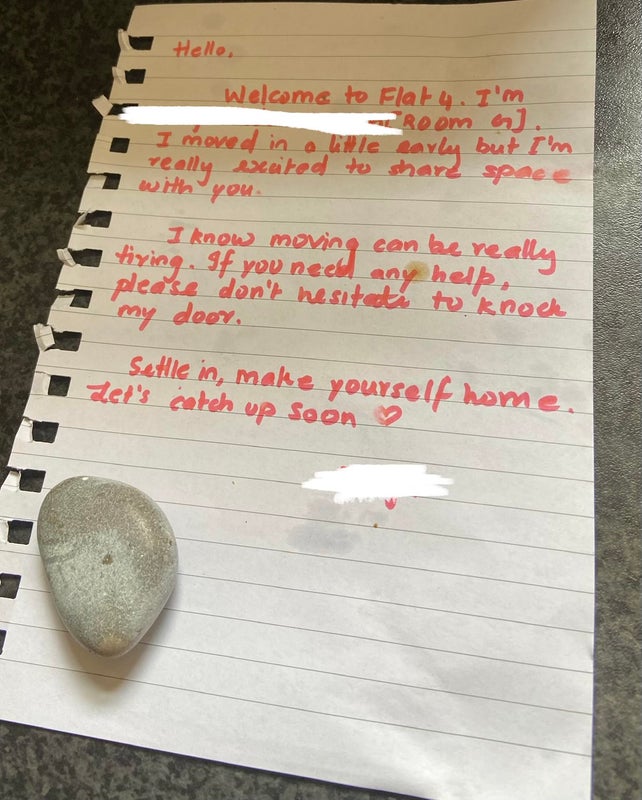 Hello,
Welcome to Flat 4. I'm
[Room G].
I moved in a little early but I'm
really excited to share space
with you.
I know moving can be really
tiring. If you need any help,
please don't hesitate to knock
my door.
Settle in, make yourself home.
Let's catch up soon ♡